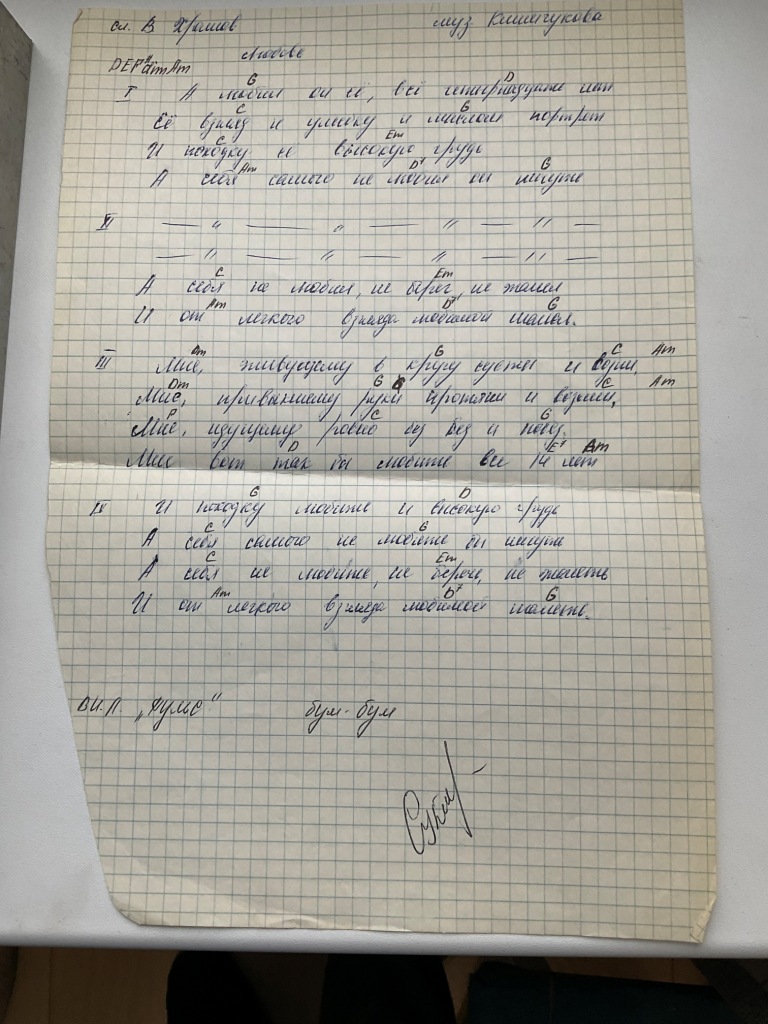 сл. В Храмов муз Кишигукова
Любовь
DEPAdmAm
G D
I А любил он её, всё четырнадцать лет
C G
Её взгляд и улыбку и милый портрет
C Em
И походку и высокую грудь
Am D7 G
А себя самого не любил он ничуть
II — " — " — " — " —
— " — " — " — " —
C Em
А себя не любил, не берег, не жалел
Am D7 G
И от легкого взгляда любимой шалел.
Dm G C Am
III Мне, живущему в кругу суеты и возни,
Dm G C Am
Мне, привыкшему руки и возни,
F C G
Мне, идущему ровно без бед и
D E7 Am
Мне вот так бы любить все 14 лет
G D
IV И походку любить и высокую грудь
C G
А себя самого не любить бы ничуть
C Em
А себя не любить, не беречь, не жалеть
Am D7 G
И от легкого взгляда любимой шалеть.
ВИ.Л. „Пульс" бум-бум